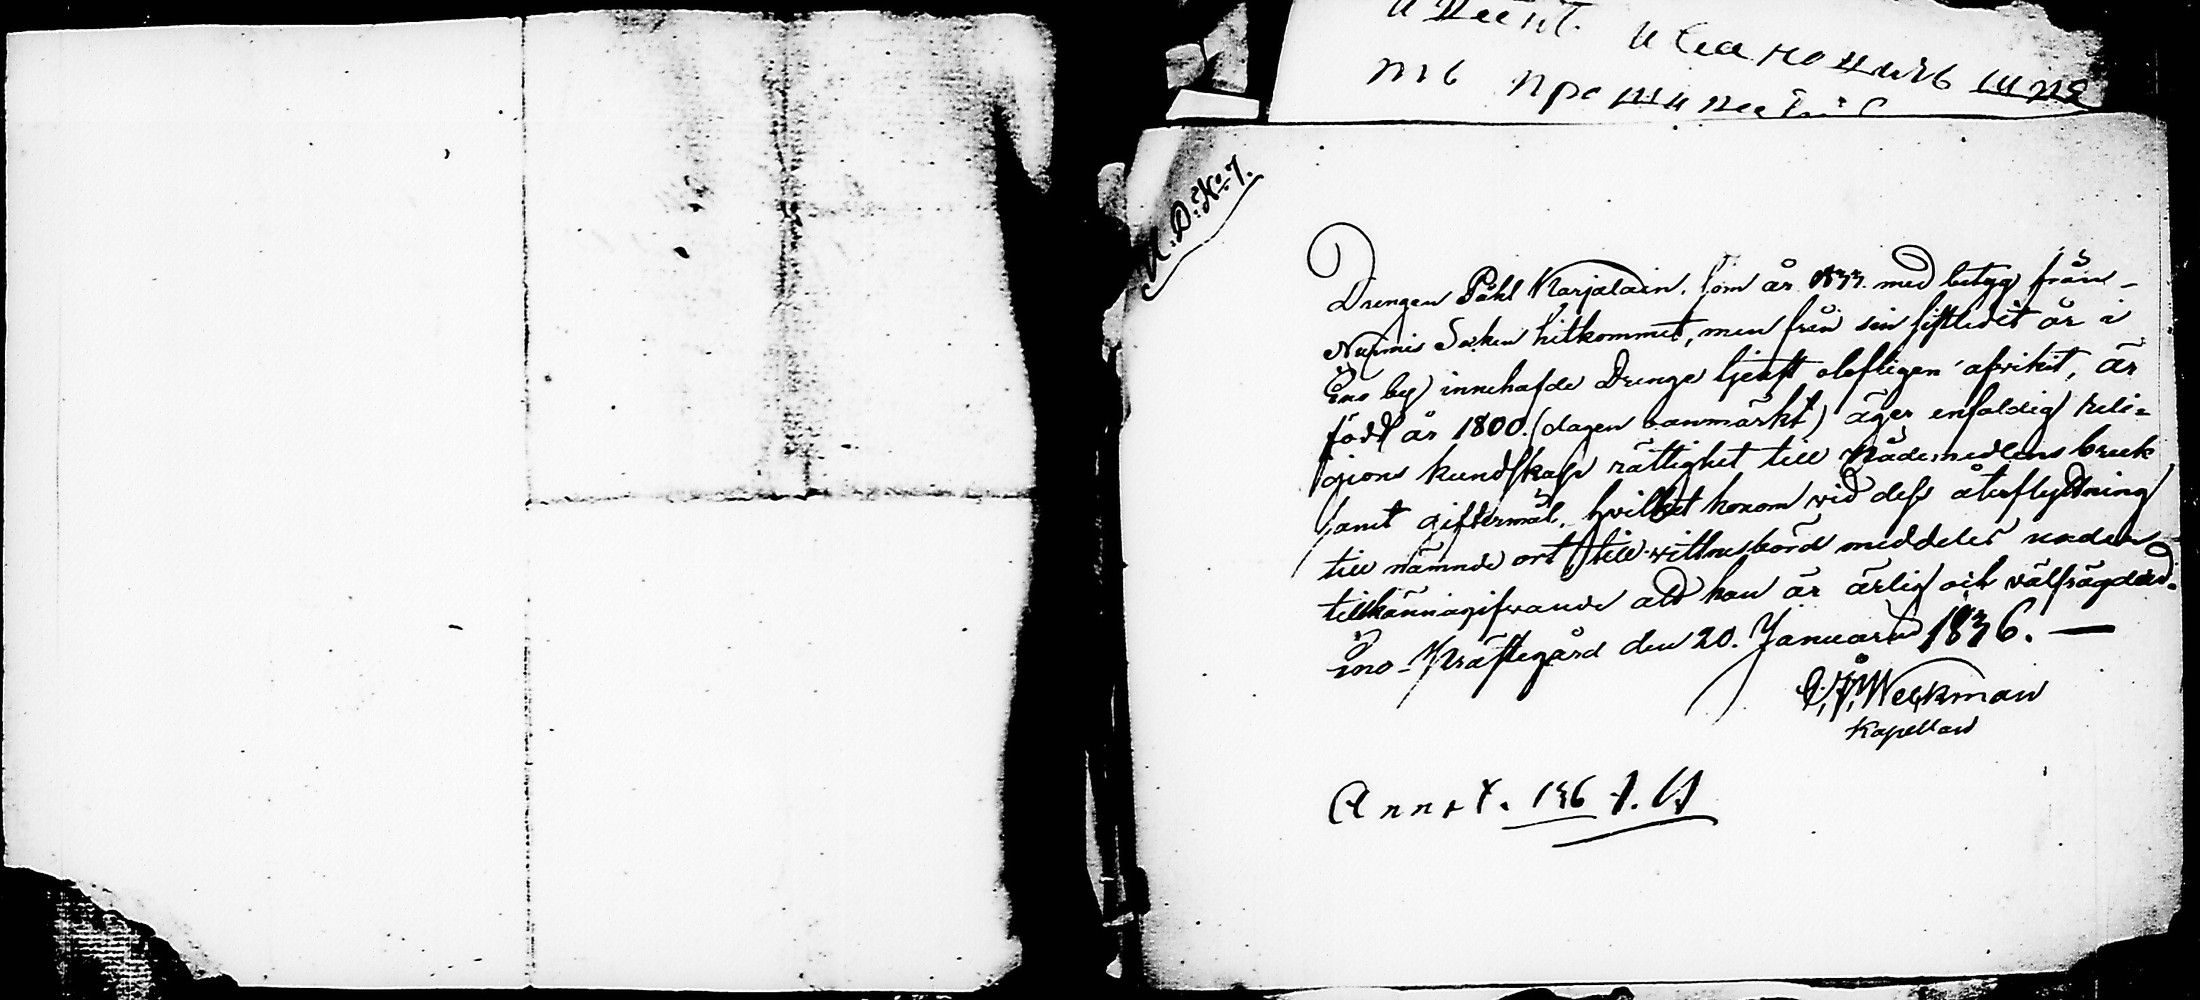 N. D:o No 7.
Drengen Påhl Karjalain, som år 1833 med betyg från
Nurmis Soken hitkommit, men från sin sistledit år i
Eno by innehafde Drenge tjenst olofligen afvikit, är
född år 1800. (dagen oanmärkt) äger enfaldig reli=
gions kundskap rättighet till Nådemedlens bruk
samt giftermål, hvilket honom vid dess återflyttning
till nämnde ort till wittnesbörd meddelas under
tillkännagifvande att han är ärlig och välfrägdad.
Eno-Prästegård den 20. Januarii 1836. —
Weckman
Kapellan
Annot. 136